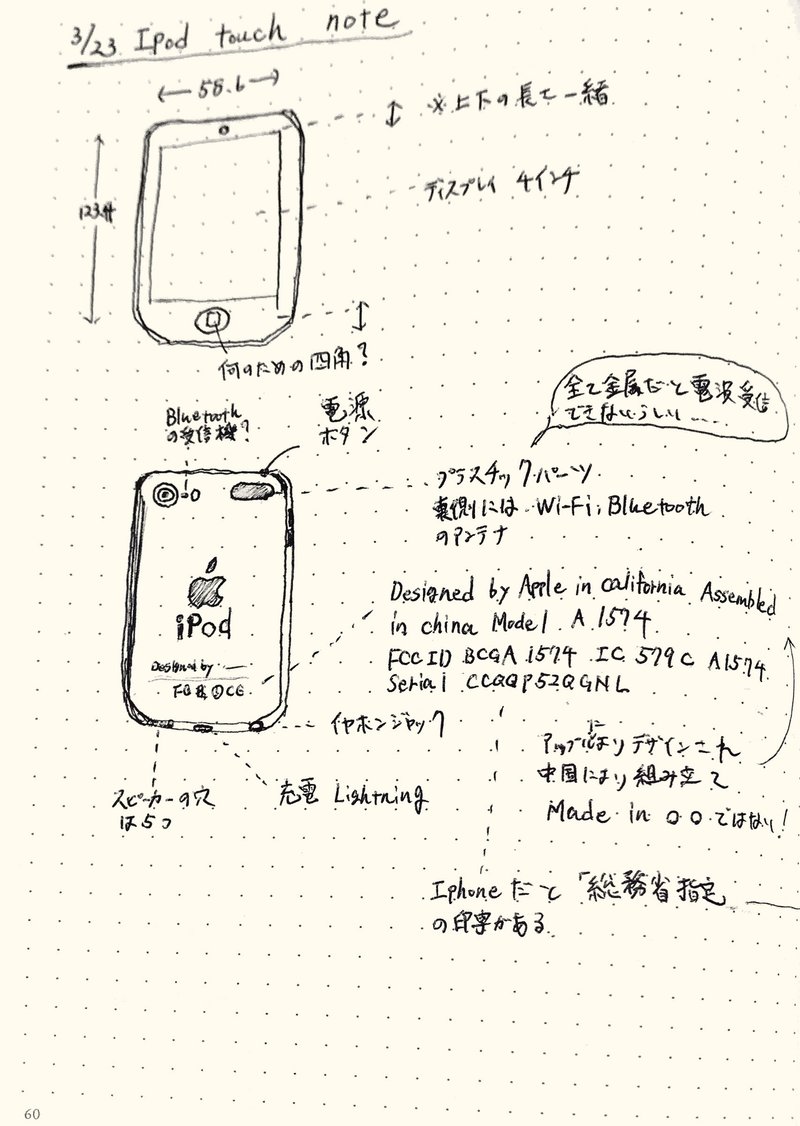 3/23 Ipod touch note
58.6
※上下の長て一緒
ディスプレイ 4インチ
123.4
何のための四角?
全て金属だと電波受信
できないらしい……
Bluetooth
の受信機?
電源
ボタン
プラスチックパーツ
裏側には Wi-Fi, Bluetooth
のアンテナ
iPod
Designed by
FC CE
Designed by Apple in california Assembled
in china Model A 1574
FCC ID BCGA 1574 IC 579C A1574
Serial CCQQP52QGNL
イヤホンジャック
アップルによりデザインされ
中国により組み立て
Made in ○○ではない!
充電 Lightning
スピーカーの穴
は5つ
Iphoneだと「総務省指定」
の印字がある
60